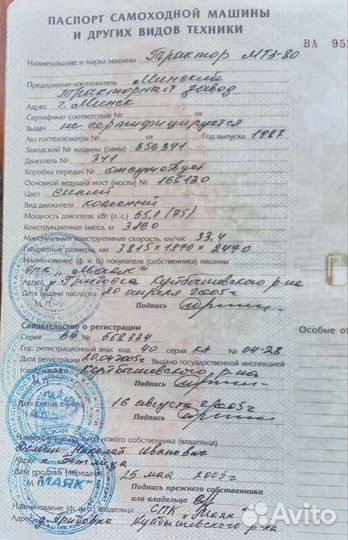 ПАСПОРТ САМОХОДНОЙ МАШИНЫ
И ДРУГИХ ВИДОВ ТЕХНИКИ
ВА 95
Наименование и марка машины Трактор МТЗ-80
Предприятие-изготовитель Минский
тракторный завод
Адрес г. Минск
Сертификат соответствия № от
Выдан не сертифицируется
Акт гостехосмотра № от Год выпуска 1987
Заводской № машины (рамы) 556341
Двигатель № 341
Коробка передач № отсутствует
Основной ведущий мост (мосты) № 165130
Цвет синий
Вид движителя колесный
Мощность двигателя, кВт (л. с.) 55,1 (75)
Конструкционная масса, кг 3160
Максимальная конструктивная скорость, км/час 33,4
Габаритные размеры, мм 3815х1970х2470
Наименование (ф. и. о.) покупателя (собственника) машины
СПК "Маяк"
Адрес д. Грибовка Куйбышевского р-на
Дата выдачи паспорта 20 апреля 2005г
М. П. Подпись
Особые от
Свидетельство о регистрации
Серия ВА № 552334
Гос. регистрационный знак код 40 серия КА № 04-28
Дата регистрации 20.04.2005г Выдано государственной инспекцией
гостехнадзора Куйбышевского р-на
Подпись
Дата снятия с учета 16 августа 2005г
М. П. Подпись
Наименование (ф. и. о.) нового собственника (владельца)
Николай Иванович
Адрес п. Бетлица
Дата продажи (передачи) 25 мая 2005г
М. П. Подпись прежнего собственника
"МАЯК"
или владельца
Наименование (ф. и. о.) СПК "Маяк"
Адрес д. Грибовка Куйбышевского р-на
Avito